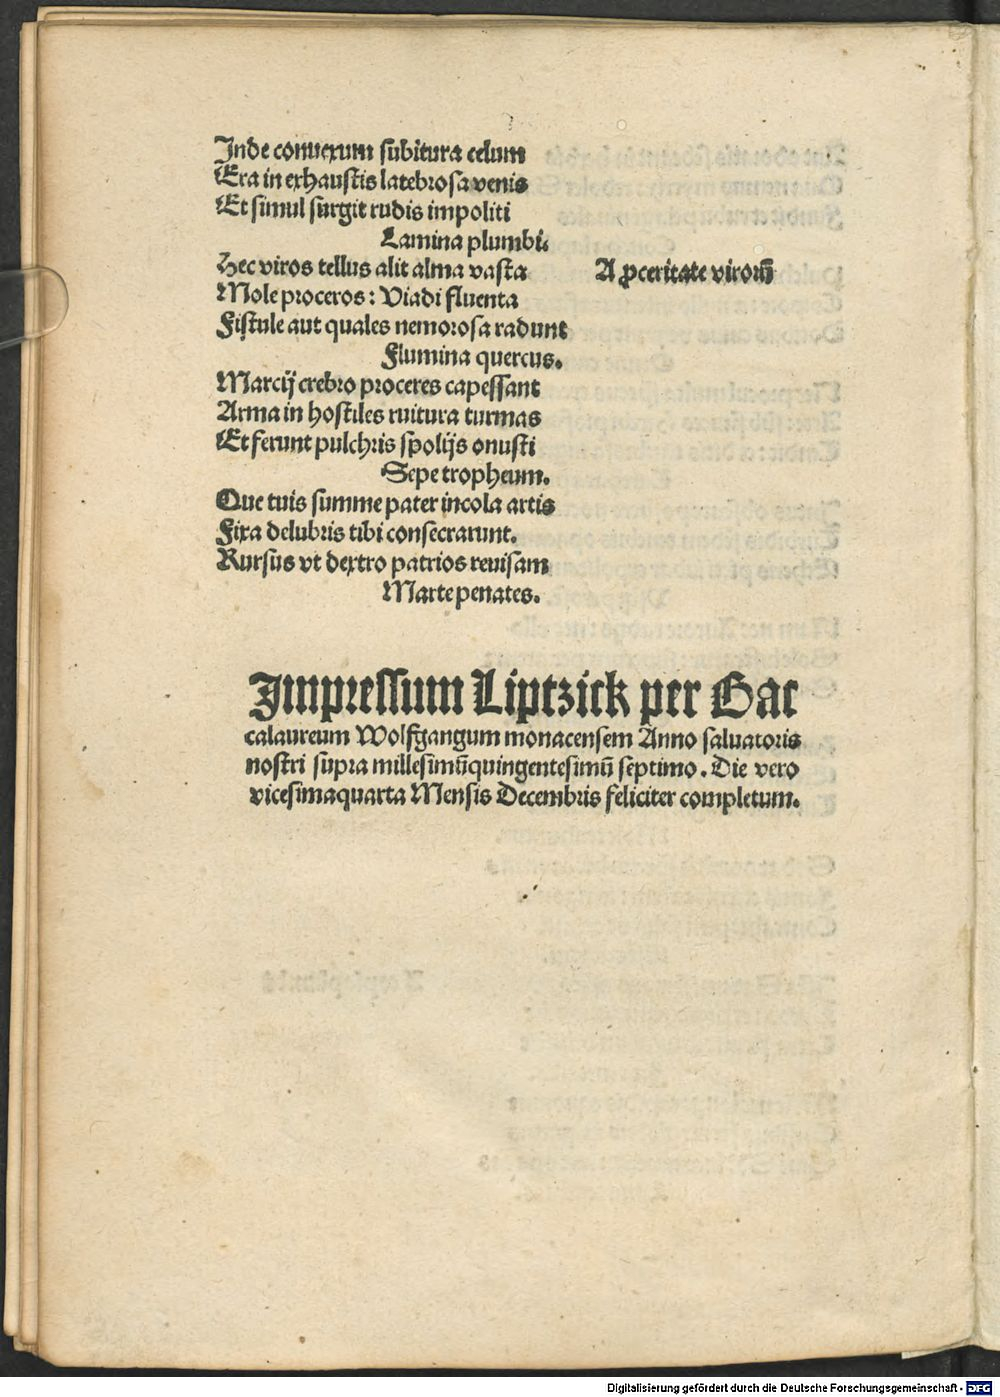 Inde conuexum subitura celum
Era in exhaustis latebrosa venis
Et simul surgit rudis impoliti
Lamina plumbi.
Hec viros tellus alit alma vasta
A ꝓceritate viroꝝ
Mole proceros: Viadi fluenta
Fistule aut quales nemorosa radunt
Flumina quercus.
Marcij crebro proceres capessant
Arma in hostiles ruitura turmas
Et ferunt pulchris spolijs onusti
Sepe tropheum.
Que tuis summe pater incola artis
Fixa delubris tibi consecrarunt.
Rursus vt dextro patrios reuisam
Marte penates.
Impressum Liptzick per Bac
calaureum Wolfgangum monacensem Anno saluatoris
nostri supra millesimūquingentesimū septimo. Die vero
vicesimaquarta Mensis Decembris feliciter completum.
Digitalisierung gefördert durch die Deutsche Forschungsgemeinschaft - DFG